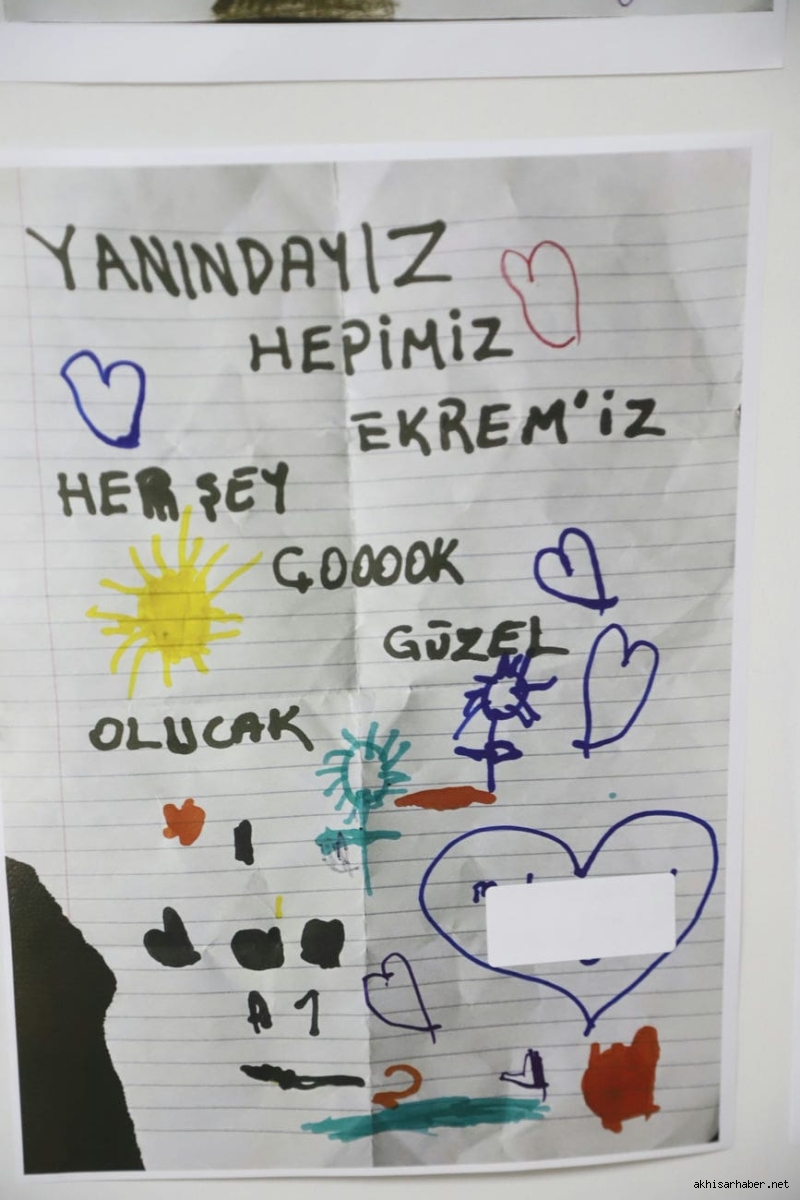 YANINDAYIZ
HEPİMİZ
EKREM'İZ
HER ŞEY
ÇOOOOK
GÜZEL
OLUCAK
A 1
akhisarhaber.net